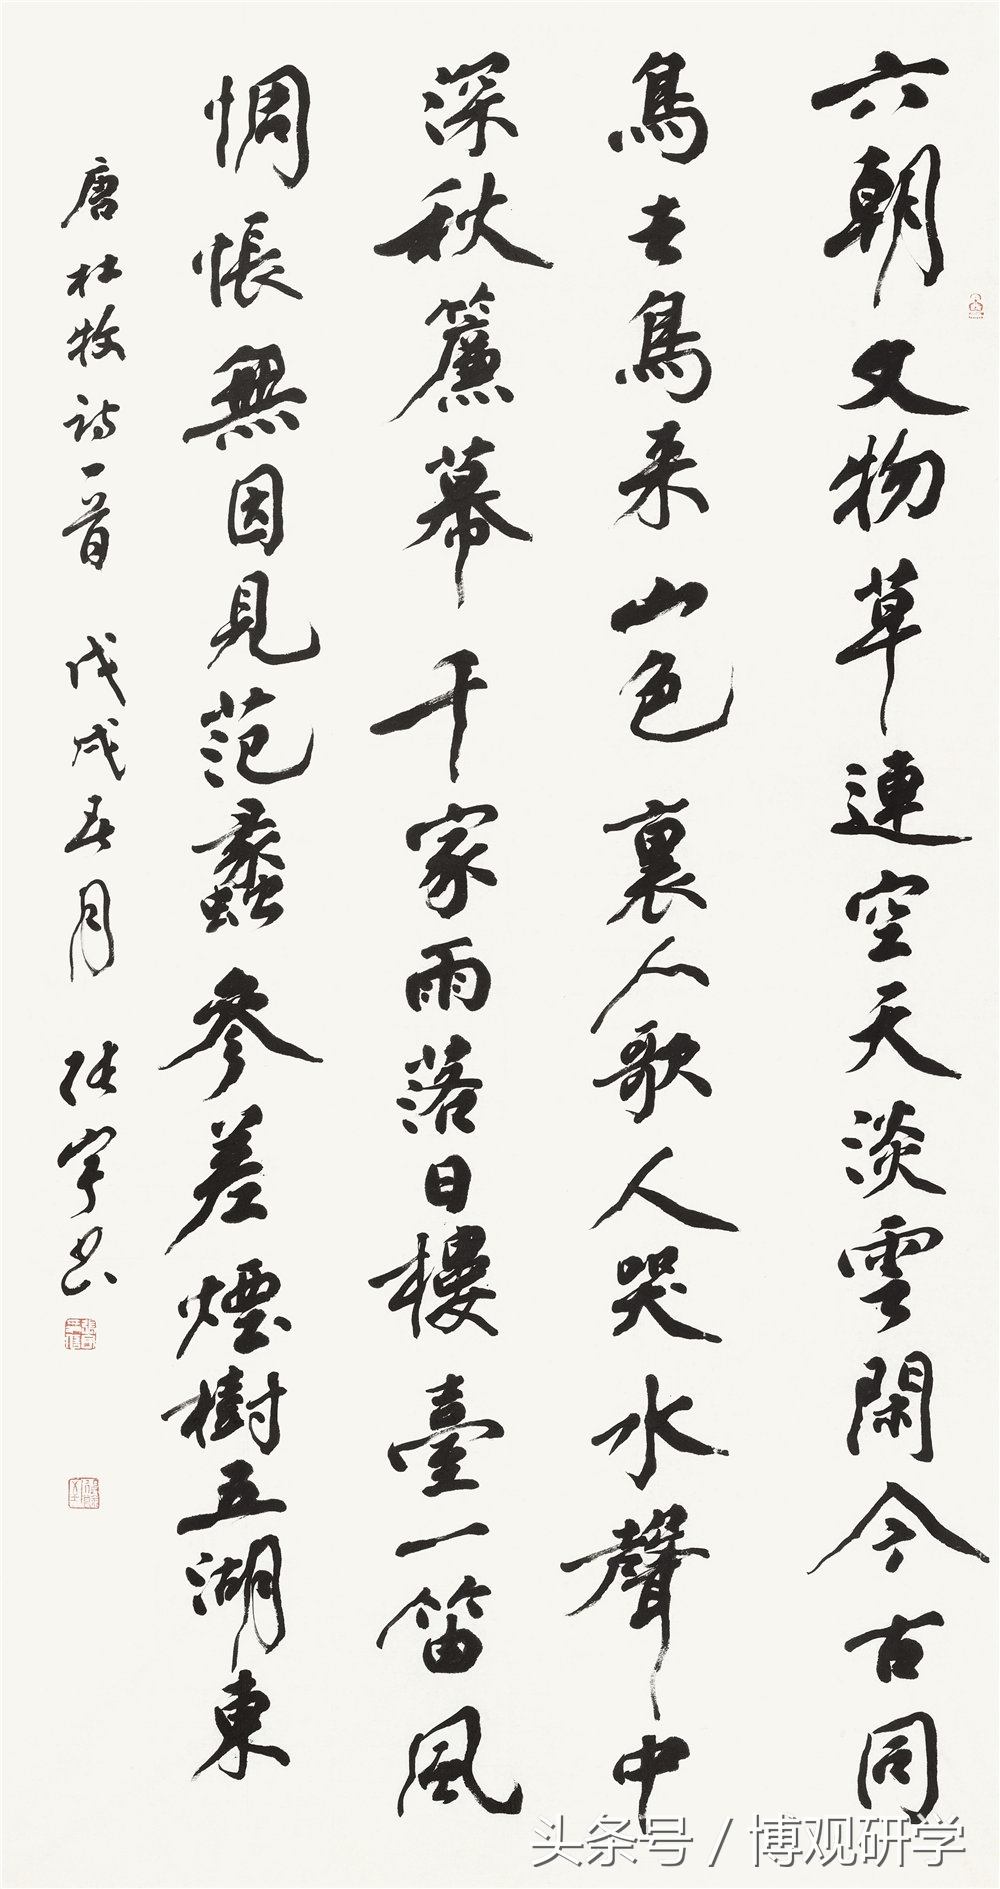 六朝文物草連空天淡雲閑今古同
鳥去鳥来山色裏人歌人哭水聲中
深秋簾幕千家雨落日樓臺一笛風
惆悵無因見范蠡參差煙樹五湖東
唐杜牧诗一首 戊戌春月 张宇书
头条号 / 博观研学